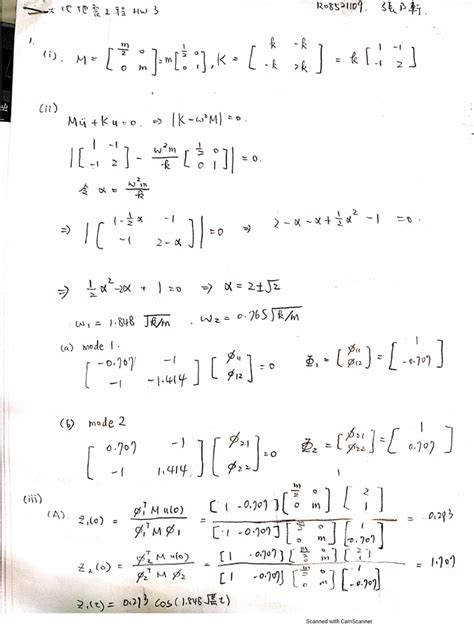 工程 HW 3
R08521109.
1.
(i). M = [m/2 0; 0 m] = m[1/2 0; 0 1], K = [k -k; -k 2k] = k[1 -1; -1 2]
(ii)
Mü + Ku = 0. ⇒ |K-ω²M| = 0.
|[1 -1; -1 2] - ω²m/k [1/2 0; 0 1]| = 0.
令 α = ω²m/k
⇒ |[1-½α -1; -1 2-α]| = 0 ⇒ 2-α-α+½α²-1 = 0.
⇒ ½α²-2α+1=0 ⇒ α = 2±√2
ω₁ = 1.848 √k/m . ω₂ = 0.765 √k/m
(a) mode 1.
[-0.707 -1; -1 -1.414] [ø₁₁; ø₁₂] = 0 Φ₁ = [ø₁₁; ø₁₂] = [1; -0.707]
(b) mode 2
[0.707 -1; -1 1.414] [ø₂₁; ø₂₂] = 0 Φ₂ = [ø₂₁; ø₂₂] = [1; 0.707]
(iii)
(A). z₁(0) = ø₁ᵀMu(0) / ø₁ᵀMø₁ = [1 -0.707][m/2 0; 0 m][2; 1] / [1 -0.707][m/2 0; 0 m][1; -0.707] = 0.293
z₂(0) = ø₂ᵀMu(0) / ø₂ᵀMø₂ = [1 -0.707][m/2 0; 0 m][2; 1] / [1 -0.707][m/2 0; 0 m][1; -0.707] = 1.707
z₁(t) = 0.293 cos(1.848√k/m t)
Scanned with CamScanner